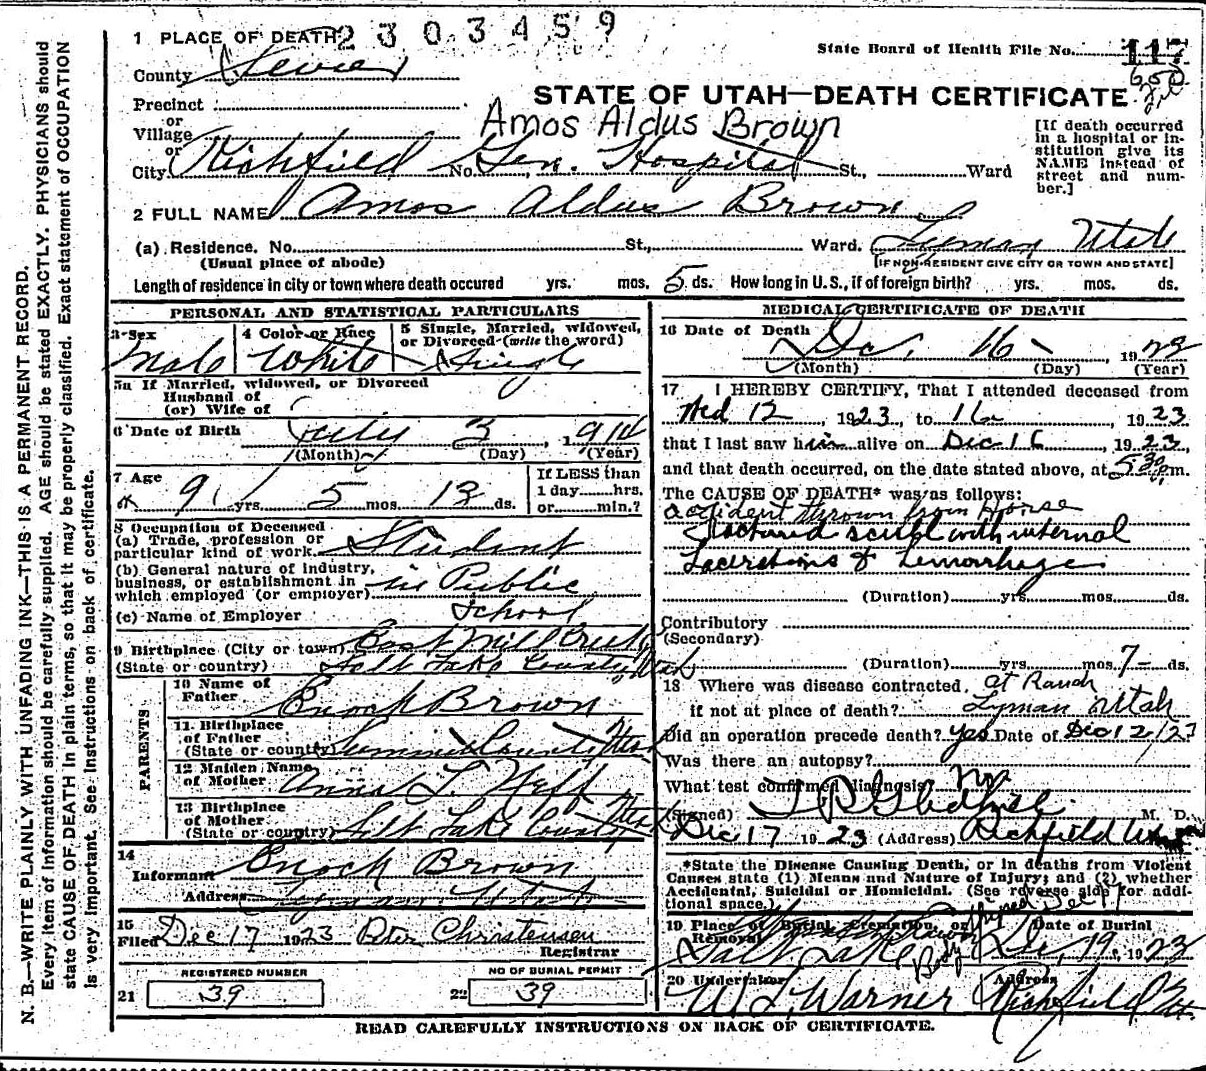 2303459
1 PLACE OF DEATH
State Board of Health File No. 117
County Sevier
Precinct
or
Village
or
City Richfield No. Gen. Hospital St., Ward
STATE OF UTAH—DEATH CERTIFICATE
Amos Aldus Brown
[If death occurred in a hospital or institution give its NAME instead of street and number.]
2 FULL NAME Amos Aldus Brown
(a) Residence. No. St., Ward. Lyman Utah
(Usual place of abode) [IF NON-RESIDENT GIVE CITY OR TOWN AND STATE]
Length of residence in city or town where death occured yrs. mos. 5 ds. How long in U. S., if of foreign birth? yrs. mos. ds.
PERSONAL AND STATISTICAL PARTICULARS
3 Sex Male
4 Color or Race White
5 Single, Married, widowed, or Divorced (write the word) Single
5a If Married, widowed, or Divorced
Husband of
(or) Wife of
6 Date of Birth July 3, 1914
(Month) (Day) (Year)
7 Age 9 yrs. 5 mos. 13 ds.
If LESS than
1 day hrs.
or min.?
8 Occupation of Deceased
(a) Trade, profession or particular kind of work. Student
(b) General nature of industry, business, or establishment in which employed (or employer) in Public School
(c) Name of Employer
9 Birthplace (City or town) East Mill Creek
(State or country) Salt Lake County, Utah
PARENTS
10 Name of Father Enoch Brown
11 Birthplace of Father (State or country) Summit County Utah
12 Maiden Name of Mother Anna L. Neff
13 Birthplace of Mother (State or country) Salt Lake County Utah
14
Informant Enoch Brown
Address Lyman Utah
15
Filed Dec 17 1923 Peter Christensen
Registrar
REGISTERED NUMBER
21 39
NO OF BURIAL PERMIT
22 39
MEDICAL CERTIFICATE OF DEATH
16 Date of Death Dec. 16, 1923
(Month) (Day) (Year)
17 I HEREBY CERTIFY, That I attended deceased from
Wed 12, 1923, to 16, 1923
that I last saw him alive on Dec 16, 1923,
and that death occurred, on the date stated above, at 530 p.m.
The CAUSE OF DEATH* was as follows:
accident thrown from Horse
fractured scull with internal
Lacerations & hemorrhage
(Duration) yrs. mos. ds.
Contributory
(Secondary)
(Duration) yrs. mos. 7 ds.
18 Where was disease contracted, at Ranch
if not at place of death? Lyman Utah
Did an operation precede death? yes Date of Dec 12/23
Was there an autopsy? No
What test confirmed diagnosis?
(Signed) M. D.
Dec 17 1923 (Address) Richfield Utah
*State the Disease Causing Death, or in deaths from Violent Causes state (1) Means and Nature of Injury; and (2) whether Accidental, Suicidal or Homicidal. (See reverse side for additional space.)
19 Place of Burial, Cremation, or Removal Salt Lake Body shipped Dec 17
Date of Burial Dec, 19, 1923
20 Undertaker W. L. Warner
Address Richfield Ut.
READ CAREFULLY INSTRUCTIONS ON BACK OF CERTIFICATE.
N. B.—WRITE PLAINLY WITH UNFADING INK—THIS IS A PERMANENT RECORD.
Every item of information should be carefully supplied. AGE should be stated EXACTLY. PHYSICIANS should
state CAUSE OF DEATH in plain terms, so that it may be properly classified. Exact statement of OCCUPATION
is very important. See Instructions on back of certificate.